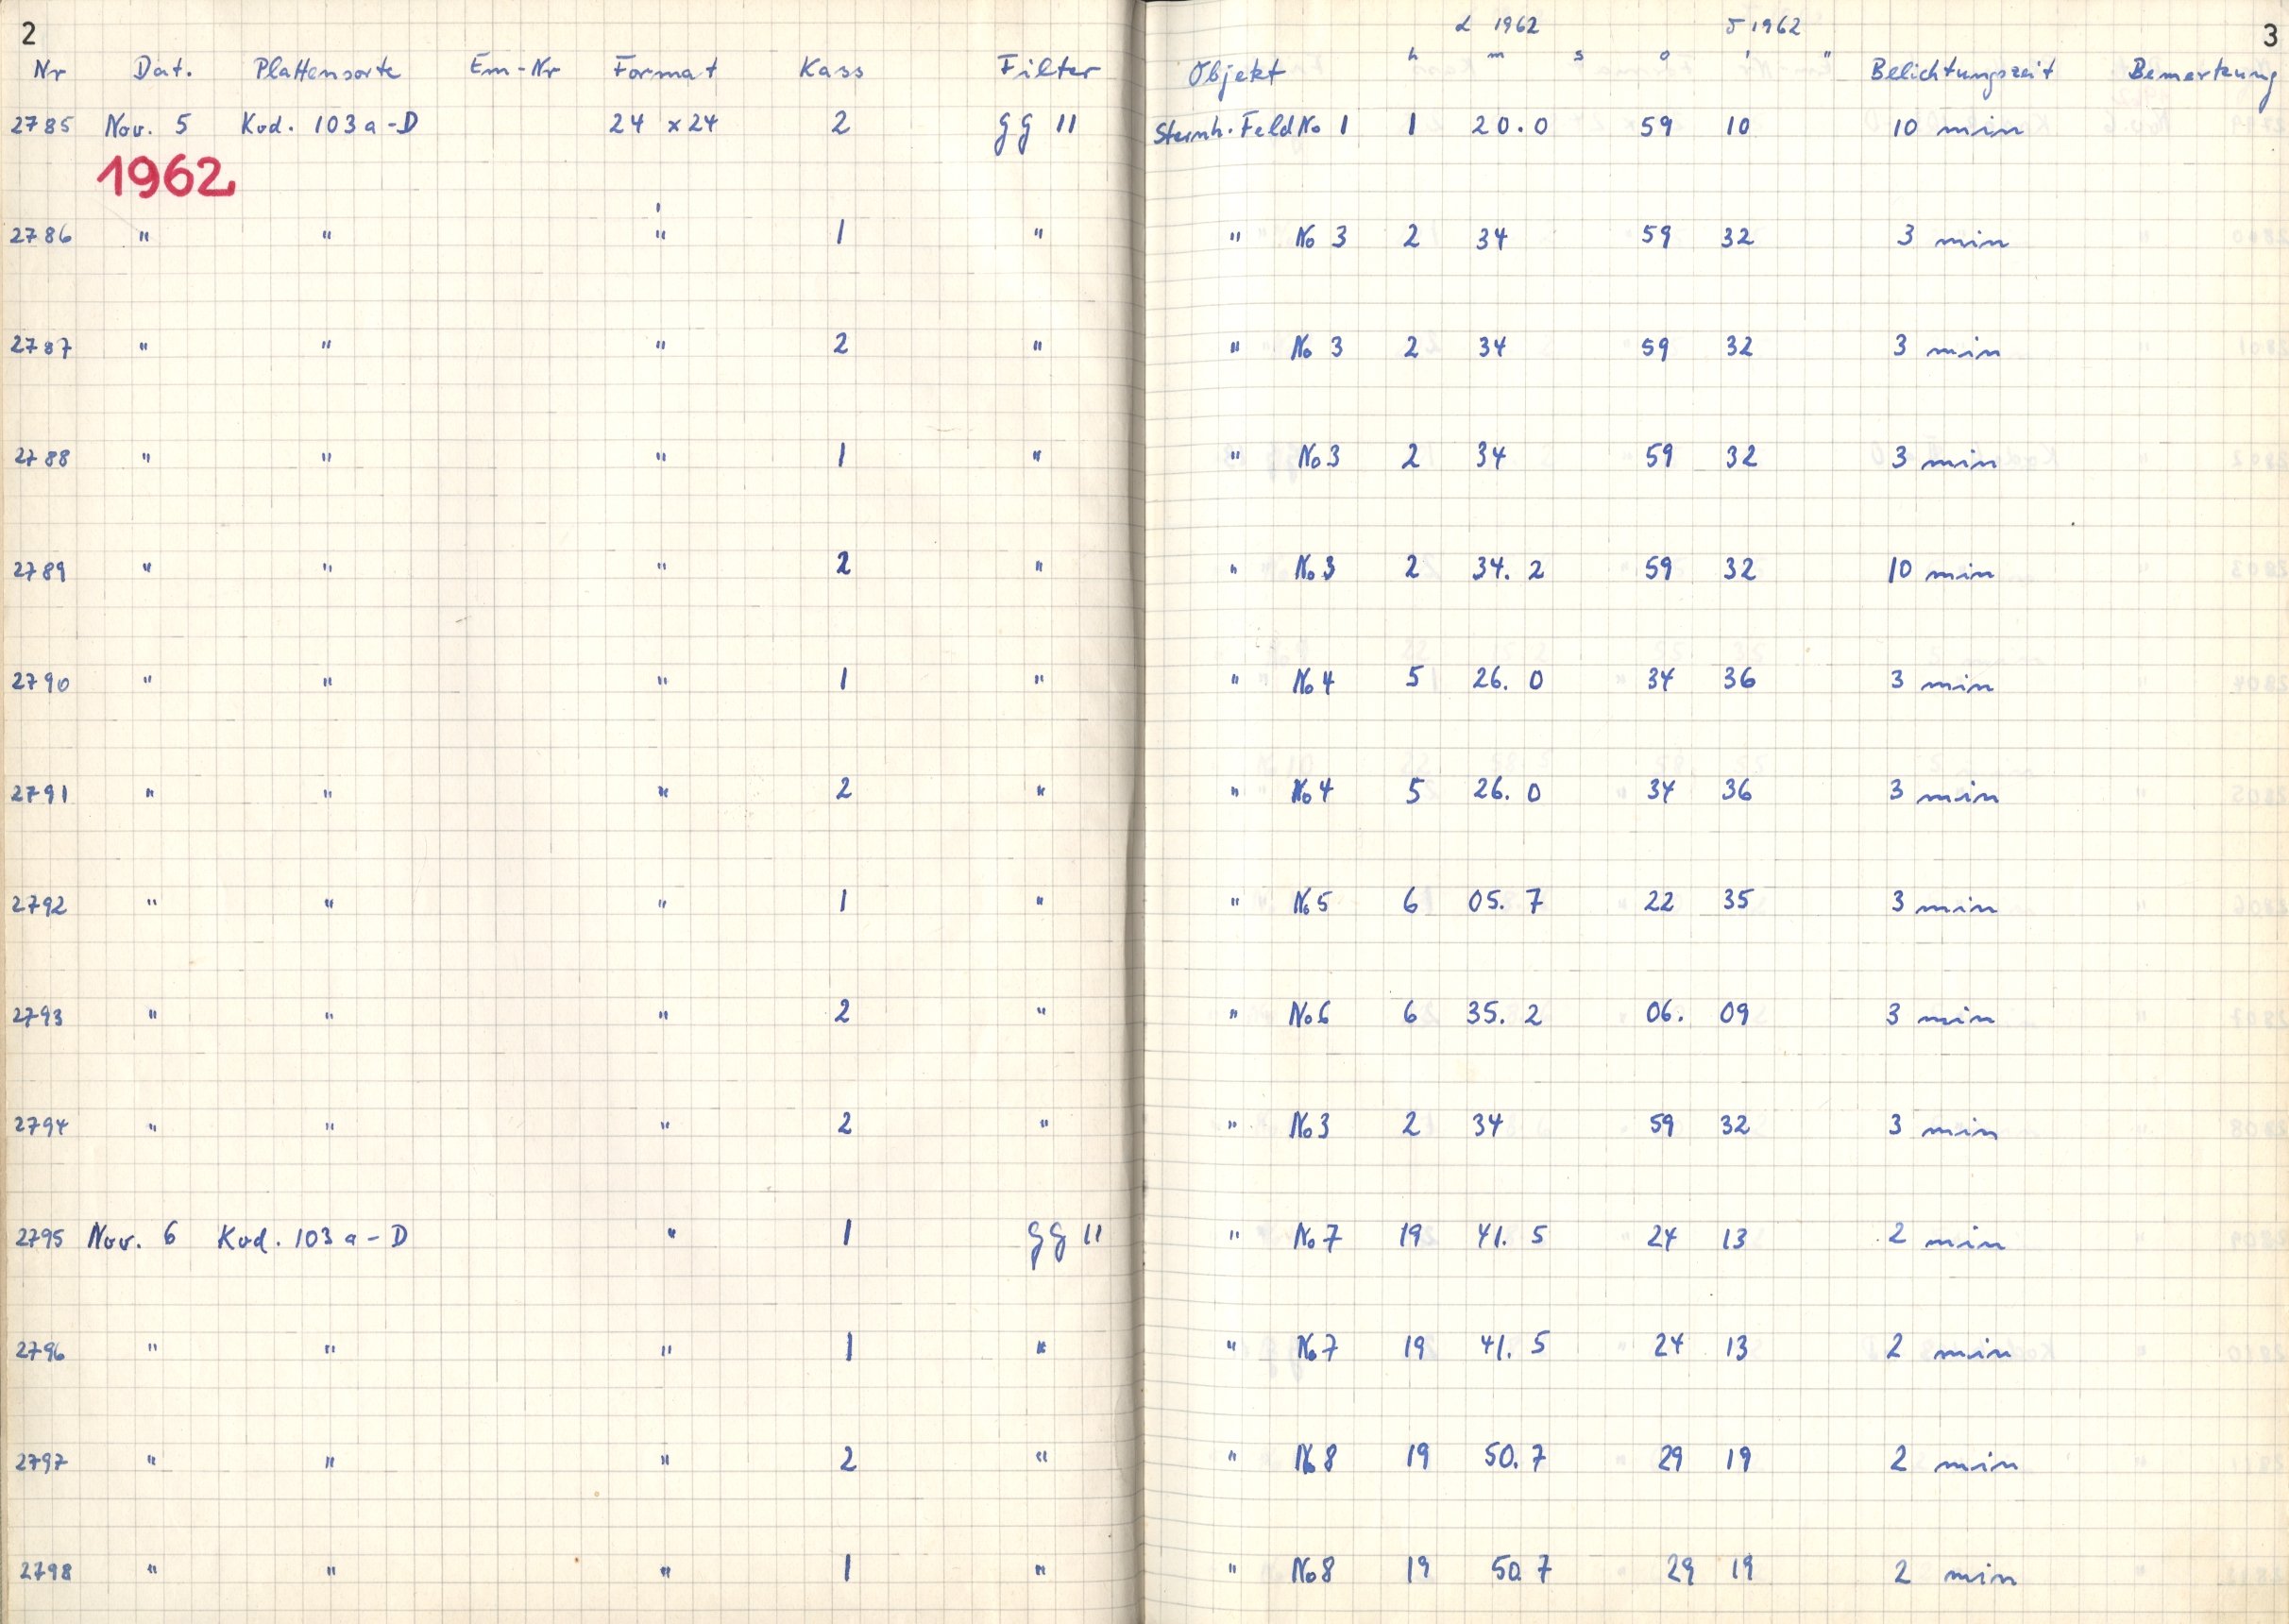 2 α 1962 δ 1962 3
h m s o ' "
Nr Dat. Plattensorte Em-Nr Format Kass Filter Objekt Belichtungszeit Bemerkung
2785 Nov. 5 Kod. 103 a-D 24 x 24 2 gg 11 Sternh. Feld No 1 1 20.0 59 10 10 min
1962
2786 " " " 1 " " No 3 2 34 59 32 3 min
2787 " " " 2 " " No 3 2 34 59 32 3 min
2788 " " " 1 " " No 3 2 34 59 32 3 min
2789 " " " 2 " " No 3 2 34.2 59 32 10 min
2790 " " " 1 " " No 4 5 26.0 34 36 3 min
2791 " " " 2 " " No 4 5 26.0 34 36 3 min
2792 " " " 1 " " No 5 6 05.7 22 35 3 min
2793 " " " 2 " " No 6 6 35.2 06. 09 3 min
2794 " " " 2 " " No 3 2 34 59 32 3 min
2795 Nov. 6 Kod. 103 a-D " 1 gg 11 " No 7 19 41.5 24 13 2 min
2796 " " " 1 " " No 7 19 41.5 24 13 2 min
2797 " " " 2 " " No 8 19 50.7 29 19 2 min
2798 " " " 1 " " No 8 19 50.7 29 19 2 min